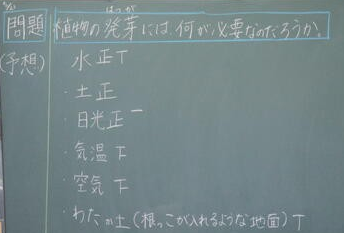 問題 植物の発芽には、何が必要なのだろうか。
はつが
(予想)
・水 正T
・土 正
・日光 正一
・気温 下
・空気 下
・わた か 土 (根っこが入れるような地面) T